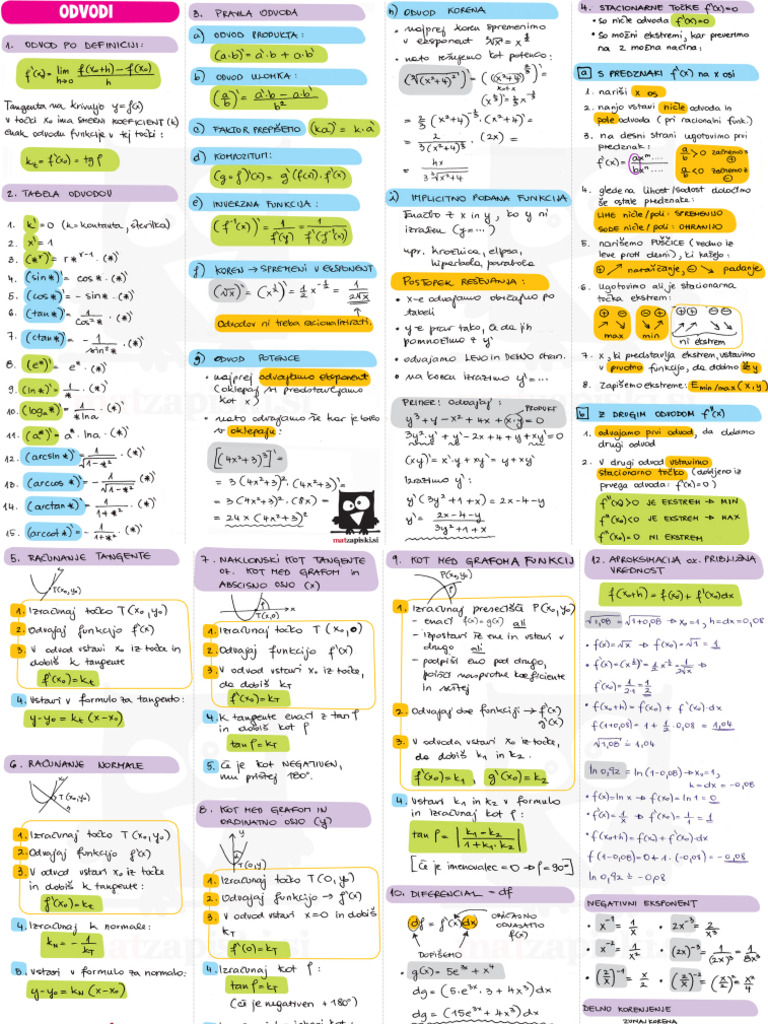 ODVODI
1. ODVOD PO DEFINICIJI:
f'(x) = lim h→0 f(x₀+h) - f(x₀) / h
Tangenta na krivuljo y = f(x)
v točki x₀ ima smerni koeficient (k)
enak odvodu funkcije v tej točki:
kₜ = f'(x₀) = tg φ
2. TABELA ODVODOV
1. k' = 0 (k = konstanta, številka)
2. x' = 1
3. (*ʳ)' = r *ʳ⁻¹ · (*)'
4. (sin*)' = cos* · (*)'
5. (cos*)' = - sin* · (*)'
6. (tan*)' = 1/cos²* · (*)'
7. (ctan*)' = - 1/sin²* · (*)'
8. (e*)' = e* · (*)'
9. (ln*)' = 1/* · (*)'
10. (logₐ*)' = 1/(* ln a) · (*)'
11. (a*)' = a* · ln a · (*)'
12. (arcsin*)' = 1/√(1-*²) · (*)'
13. (arccos*)' = - 1/√(1-*²) · (*)'
14. (arctan*)' = 1/(1+*²) · (*)'
15. (arccot*)' = - 1/(1+*²) · (*)'
3. PRAVILA ODVODA
a) ODVOD PRODUKTA:
(a·b)' = a'·b + a·b'
b) ODVOD ULOMKA:
(a/b)' = (a'·b - a·b')/b²
c) FAKTOR PREPIŠEMO (ka)' = k·a'
d) KOMPOZITUM:
(g∘f)'(x) = g'(f(x))·f'(x)
e) INVERZNA FUNKCIJA:
(f⁻¹(x))' = 1/f'(y) = 1/f'(f⁻¹(x))
f) KOREN → SPREMENI V EKSPONENT
(√x)' = (x^½)' = ½ x^-½ = 1/(2√x)
Odvodov ni treba racionalizirati.
g) ODVOD POTENCE
• najprej odvajamo eksponent
(oklepaj si predstavljamo
kot x)
• nato odvajamo še kar je bilo
v oklepaju:
[(4x²+3)³]' =
= 3(4x²+3)² · (4x²+3)' =
= 3(4x²+3)² · (8x) =
= 24x(4x²+3)²
matzapiski.si
h) ODVOD KORENA
• najprej koren spremenimo
v eksponent
• nato rešujemo kot potenco:
(∛(x²+4)²)' = ((x²+4)^⅔)' =
kot x
(x^⅔)' = ⅔ x^-⅓
= ⅔ (x²+4)^-⅓ · (x²+4)' =
= 2/(3(x²+4)^⅓) · (2x) =
= 4x/(3∛(x²+4))
i) IMPLICITNO PODANA FUNKCIJA
funkcija z x in y, ko y ni
izražen (y = ...)
npr. krožnica, elipsa,
hiperbola, parabola
POSTOPEK REŠEVANJA:
• x-e odvajamo običajno po
tabeli
• y-e prav tako, a da jih
pomnožimo z y'
• odvajamo LEVO in DESNO stran.
• na koncu izrazimo y' = ...
PRIMER: Odvajaj:
PRODUKT
y³ + y - x² + 4x + x·y = 0
3y²·y' + y' - 2x + 4 + y + xy' = 0
(xy)' = x'·y + xy' = y + xy'
Izrazimo y':
y'(3y² + 1 + x) = 2x - 4 - y
y' = (2x - 4 - y)/(3y² + 1 + x)
4. STACIONARNE TOČKE f'(x) = 0
• so ničle odvoda f'(x) = 0
• so možni ekstremi, kar preverimo
na 2 možna načina:
a S PREDZNAKI f'(x) na x osi
1. nariši x os
2. nanjo vstavi ničle odvoda in
pole odvoda (pri racionalni funk.)
3. na desni strani ugotovimo prvi
predznak:
f'(x) = axᵐ..../bxⁿ....
a/b > 0 začnemo z ⊕
a/b < 0 začnemo z ⊖
4. glede na lihost/sodost določimo
še ostale predznake:
LIHE ničle/poli: SPREMENIJO
SODE ničle/poli: OHRANIJO
5. narišemo PUŠČICE (vedno iz
leve proti desni), ki kažejo:
⊕ ↗ naraščanje, ⊖ ↘ padanje
6. Ugotovimo ali je stacionarna
točka ekstrem:
⊕ ⊖ ⊖ ⊕ ⊕ ⊕ ⊖ ⊖
max min ni ekstrem
7. x, ki predstavlja ekstrem, vstavimo
v prvotno funkcijo, da dobimo še y
8. Zapišemo ekstreme: E min/max (x, y)
b Z DRUGIM ODVODOM f''(x)
1. odvajamo prvi odvod, da dobimo
drugi odvod
2. v drugi odvod vstavimo
stacionarno točko (dobljeno iz
prvega odvoda: f'(x) = 0)
f''(x₀) > 0 JE EKSTREM → MIN
f''(x₀) < 0 JE EKSTREM → MAX
f''(x₀) = 0 NI EKSTREM
5. RAČUNANJE TANGENTE
T(x₀,y₀)
1. Izračunaj točko T(x₀,y₀)
2. Odvajaj funkcijo f'(x)
3. V odvod vstavi x₀ iz točke in
dobiš k tangente
f'(x₀) = kₜ
4. Vstavi v formulo za tangento:
y - y₀ = kₜ(x - x₀)
6. RAČUNANJE NORMALE
T(x₀,y₀)
1. Izračunaj točko T(x₀,y₀)
2. Odvajaj funkcijo f'(x)
3. V odvod vstavi x₀ iz točke
in dobiš k tangente:
f'(x₀) = kₜ
4. Izračunaj k normale:
k_N = - 1/k_T
5. Vstavi v formulo za normalo:
y - y₀ = k_N(x - x₀)
7. NAKLONSKI KOT TANGENTE
oz. KOT MED GRAFOM in
ABSCISNO OSJO (x)
T(x,0)
1. Izračunaj točko T(x₀,0)
2. Odvajaj funkcijo f'(x)
3. V odvod vstavi x₀ iz točke,
da dobiš k_T
f'(x₀) = k_T
4. K tangente enači z tan φ
in dobiš kot φ
tan φ = k_T
5. Če je kot NEGATIVEN,
mu prištej 180°.
8. KOT MED GRAFOM IN
ORDINATNO OSJO (y)
T(0,y)
1. Izračunaj točko T(0,y₀)
2. Odvajaj funkcijo → f'(x)
3. V odvod vstavi x=0 in dobiš
k_T
f'(0) = k_T
4. Izračunaj kot φ:
tan φ = k_T
(če je negativen +180°)
9. KOT MED GRAFOMA FUNKCIJ
P(x₀,y₀)
1. Izračunaj presečišča P(x₀,y₀)
- enači f(x) = g(x) ali
- izpostavi iz ene in vstavi v
drugo ali
- podpiši eno pod drugo,
poišči nasprotne koeficiente
in seštej
2. Odvajaj dve funkciji → f'(x)
g'(x)
3. V odvoda vstavi x₀ iz točke,
da dobiš k₁ in k₂.
f'(x₀) = k₁, g'(x₀) = k₂
4. Vstavi k₁ in k₂ v formulo
in izračunaj kot φ:
tan φ = |(k₁ - k₂)/(1 + k₁·k₂)|
[Če je imenovalec = 0 → φ = 90°]
10. DIFERENCIAL = df
df = f'(x) dx
OBIČAJNO
ODVAJAMO
f(x)
DOPIŠEMO
• g(x) = 5e³ˣ + x⁴
dg = (5·e³ˣ·3 + 4x³) dx
dg = (15e³ˣ + 4x³) dx
12. APROKSIMACIJA oz. PRIBLIŽNA
VREDNOST
f(x₀+h) = f(x₀) + f'(x₀)dx
√1,08 = √(1+0,08) → x₀=1, h=dx=0,08
• f(x) = √x → f(x₀) = √1 = 1
• f'(x) = (x^½)' = ½x^-½ = 1/(2√x) →
f'(x₀) = 1/(2·1) = 1/2
• f(x₀+h) = f(x₀) + f'(x₀)·dx
f(1+0,08) = 1 + ½·0,08 = 1,04
√1,08 ≐ 1,04
ln 0,92 = ln(1-0,08) → x₀=1,
h = dx = -0,08
• f(x) = ln x → f(x₀) = ln 1 = 0
• f'(x) = 1/x → f'(x₀) = 1/1 = 1
• f(x₀+h) = f(x₀) + f'(x₀)dx
f(1-0,08) = 0 + 1·(-0,08) = -0,08
ln 0,92 ≐ -0,08
NEGATIVNI EKSPONENT
• x⁻¹ = 1/x • 2x⁻³ = 2/x³
• x⁻² = 1/x² • (2x)⁻³ = 1/(2x)³ = 1/8x³
• (2/x)⁻¹ = x/2
DELNO KORENJENJE